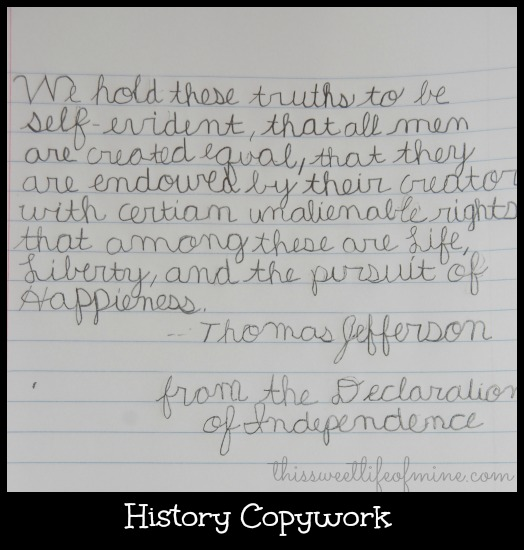 We hold these truths to be
self-evident, that all men
are created equal, that they
are endowed by their creator
with certian unalienable rights
that among these are Life,
Liberty, and the pursuit of
Happieness.
-- Thomas Jefferson
from the Declaration
of Independence
thissweetlifeofmine.com
History Copywork